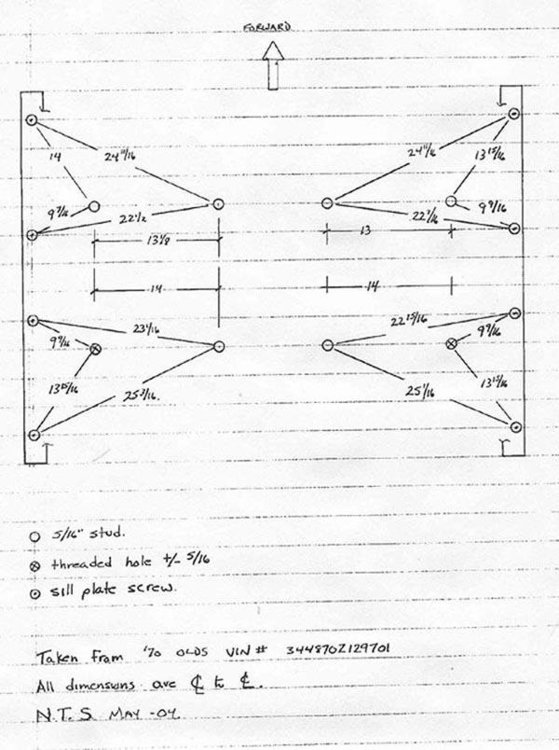 FORWARD
14
24 11/16
24 11/16
13 15/16
9 7/16
22 1/2
22 7/16
9 9/16
13 1/8
13
14
14
23 1/16
22 15/16
9 9/16
9 9/16
13 15/16
25 3/16
25 1/16
13 15/16
5/16" stud.
threaded hole +/- 5/16
sill plate screw.
Taken from '70 OLDS VIN# 344870Z129701
All dimensions are ℄ to ℄.
N.T.S MAY-04